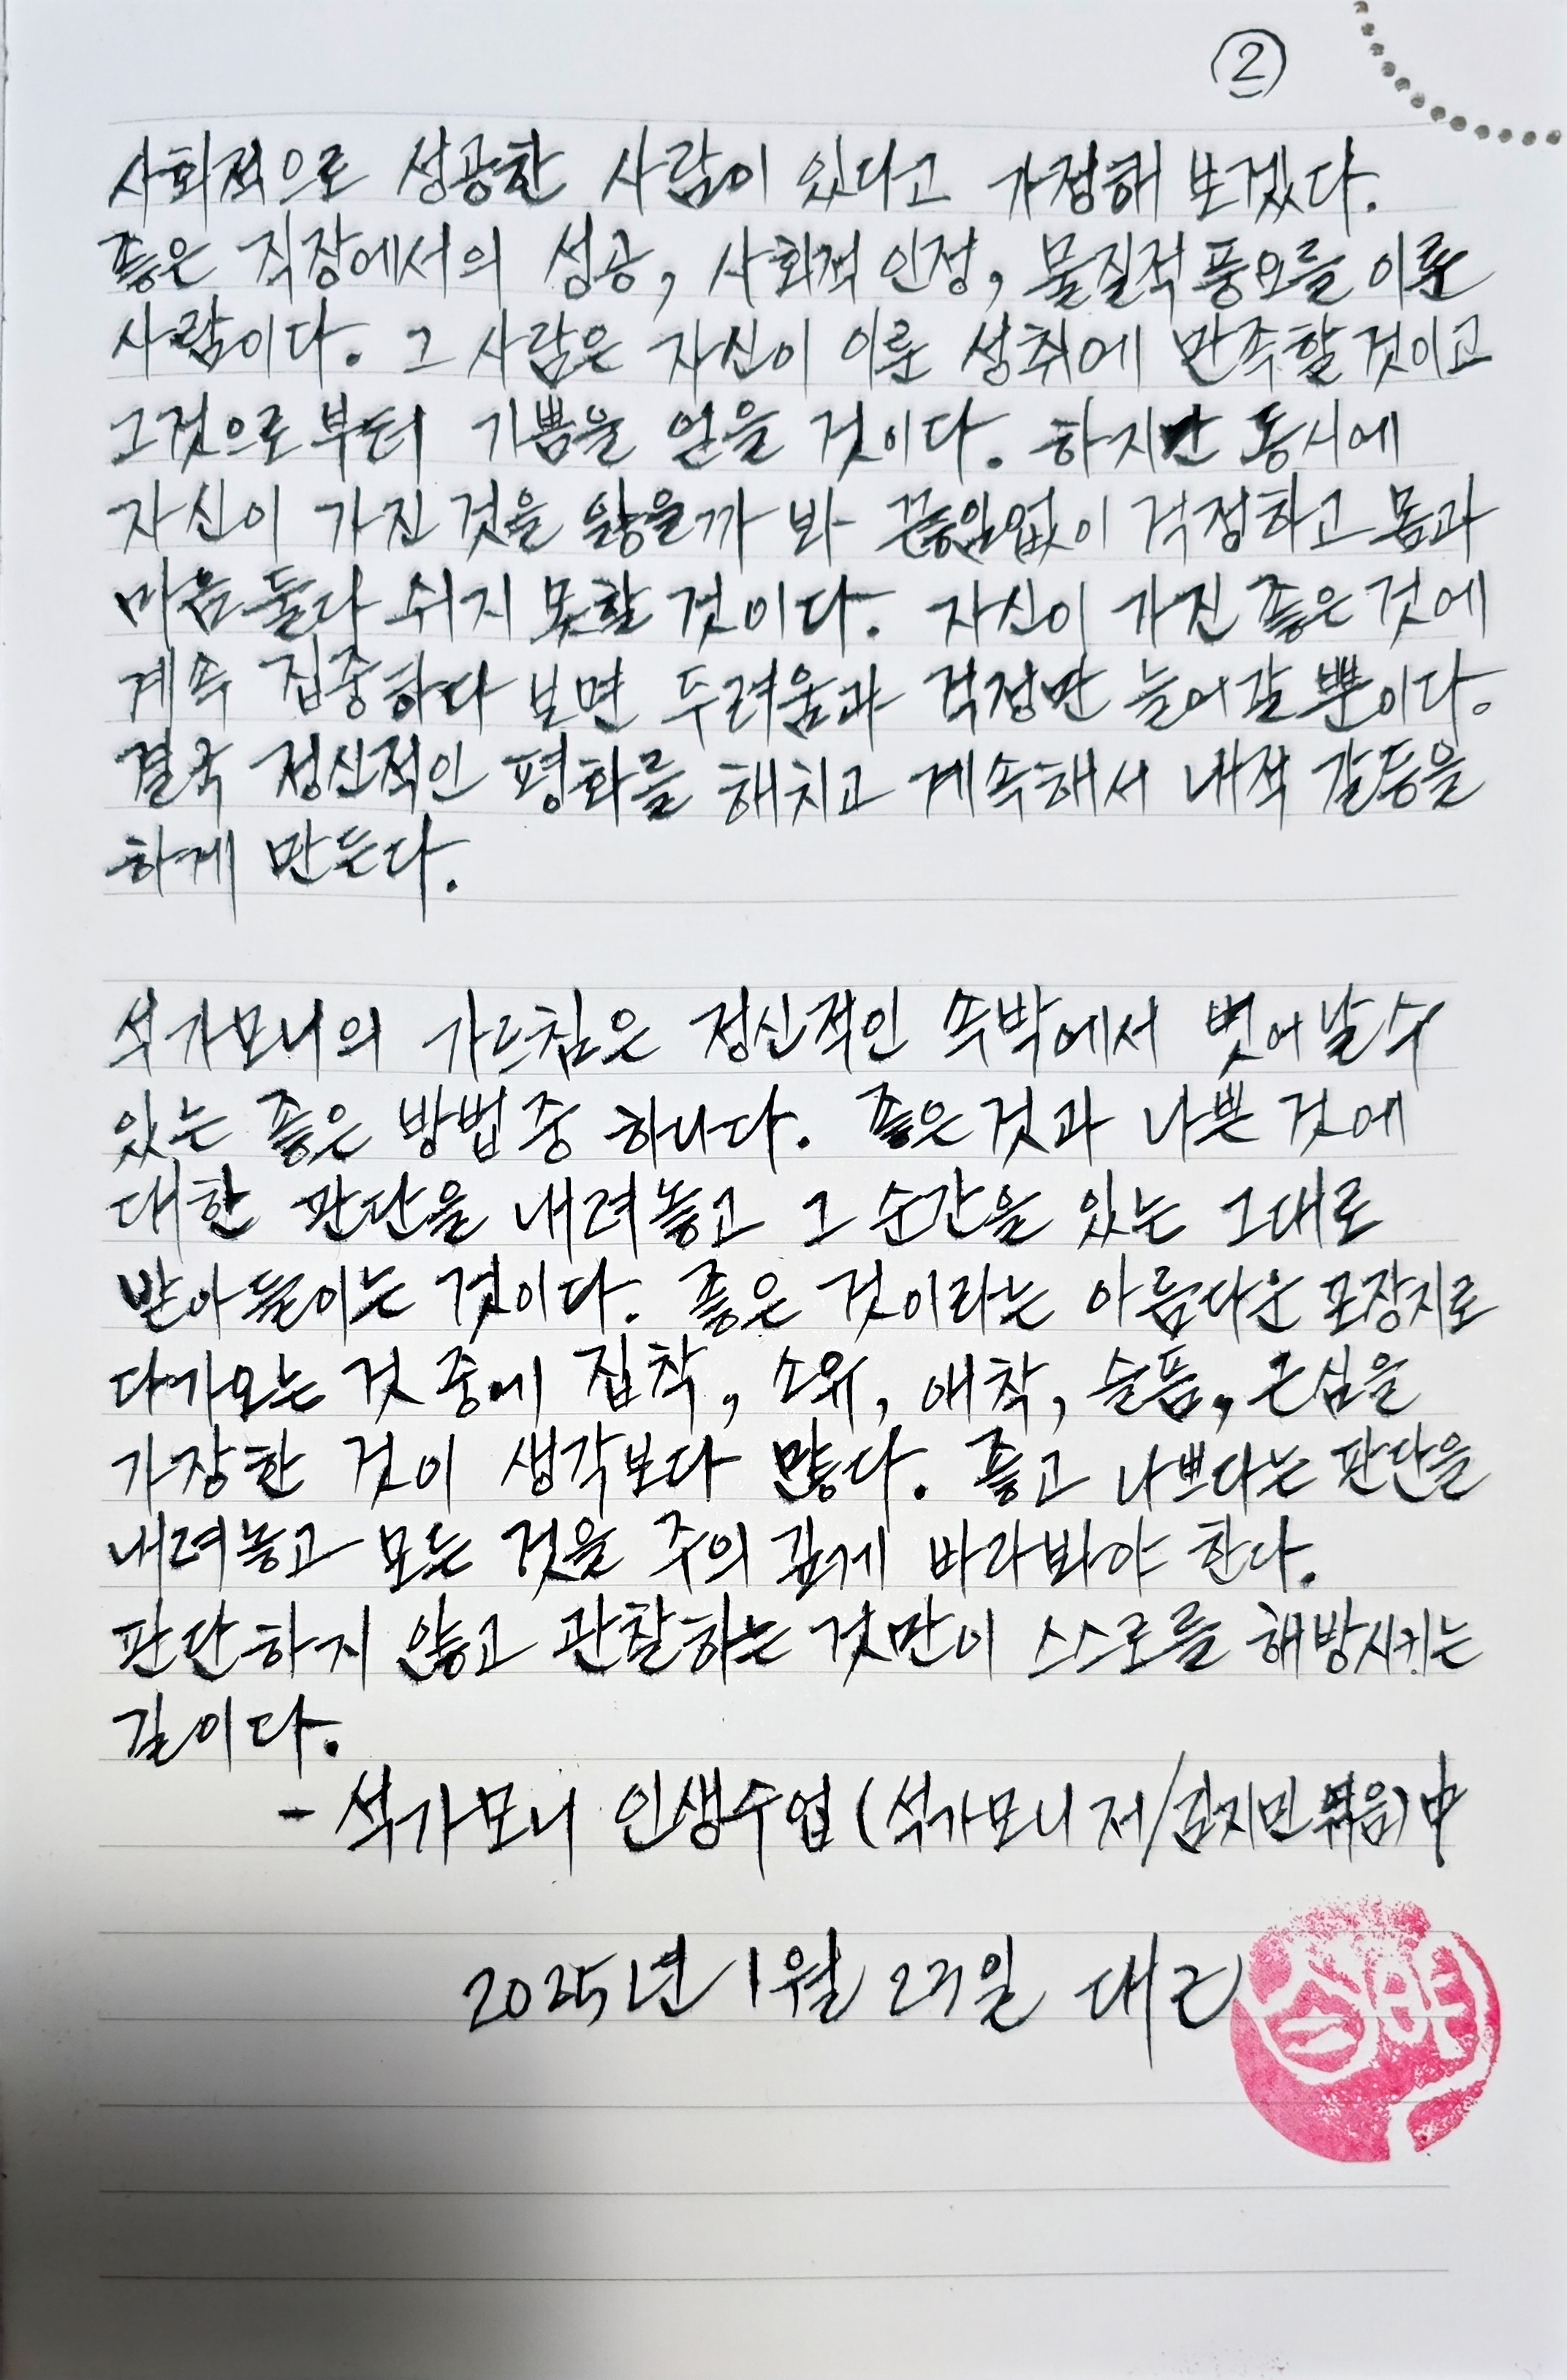 ②
사회적으로 성공한 사람이 있다고 가정해 보겠다.
좋은 직장에서의 성공, 사회적 인정, 물질적 풍요를 이룬
사람이다. 그 사람은 자신이 이룬 성취에 만족할 것이고
그것으로부터 기쁨을 얻을 것이다. 하지만 동시에
자신이 가진 것을 잃을까 봐 끊임없이 걱정하고 몸과
마음 둘다 쉬지 못할 것이다. 자신이 가진 좋은 것에
계속 집중하다 보면 두려움과 걱정만 늘어갈 뿐이다.
결국 정신적인 평화를 해치고 계속해서 내적 갈등을
하게 만든다.
석가모니의 가르침은 정신적인 속박에서 벗어날 수
있는 좋은 방법 중 하나다. 좋은 것과 나쁜 것에
대한 판단을 내려놓고 그 순간을 있는 그대로
받아들이는 것이다. 좋은 것이라는 아름다운 포장지로
다가오는 것 중에 집착, 소유, 애착, 슬픔, 근심을
가장한 것이 생각보다 많다. 좋고 나쁘다는 판단을
내려놓고 모든 것을 주의 깊게 바라봐야 한다.
판단하지 않고 관찰하는 것만이 스스로를 해방시키는
길이다.
- 석가모니 인생수업 (석가모니 저/김지민 엮음) 中
2025년 1월 27일 대근